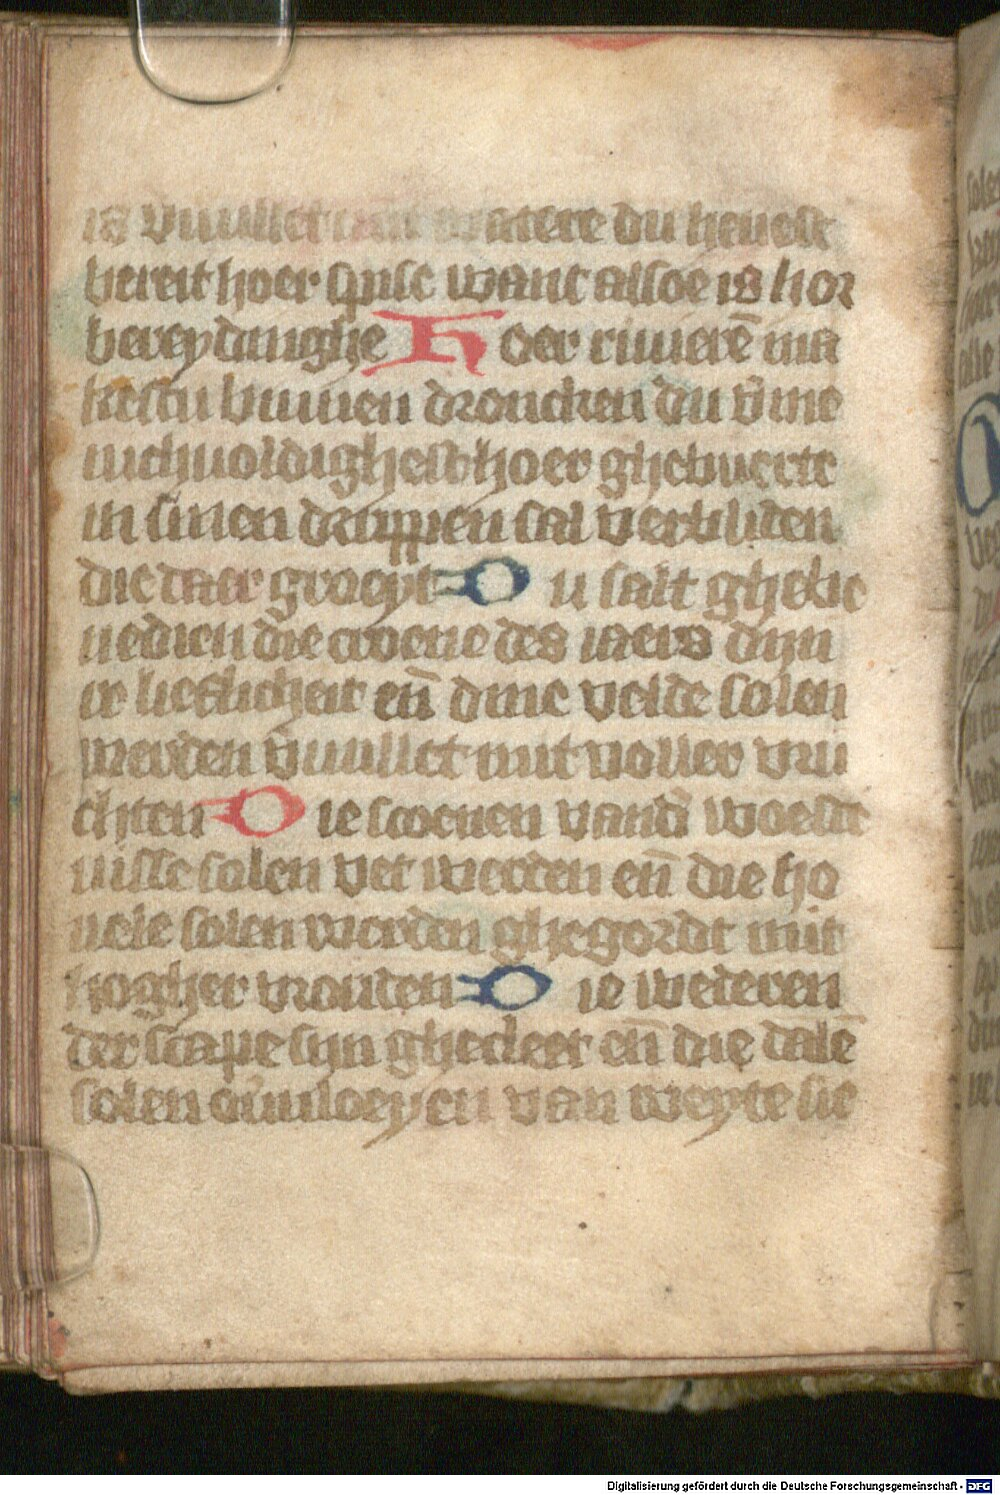 is vuullet van watere du heuest
bereit hoer spise want alsoe is hor
bereydinghe Hoer riuierē ma
kestu binnen droncken du v̄me
nichuoldighest hoer ghebuerte
in sinen druppen sal verbliden
die daer groeyt Du salt ghebe
nedien die croene des iaers dijn
er lieflicheit en̄ dine velde solen
werden v̄uullet mit voller vru
chten Die scoenen vand' woest
nisse solen vet werden en̄ die ho
uele solen werden ghegordt mit
hogher vrouden Die wederen
der scape sijn ghecleet en̄ die dalē
solen ouuloeyen van weyte sie
Digitalisierung gefördert durch die Deutsche Forschungsgemeinschaft - DFG